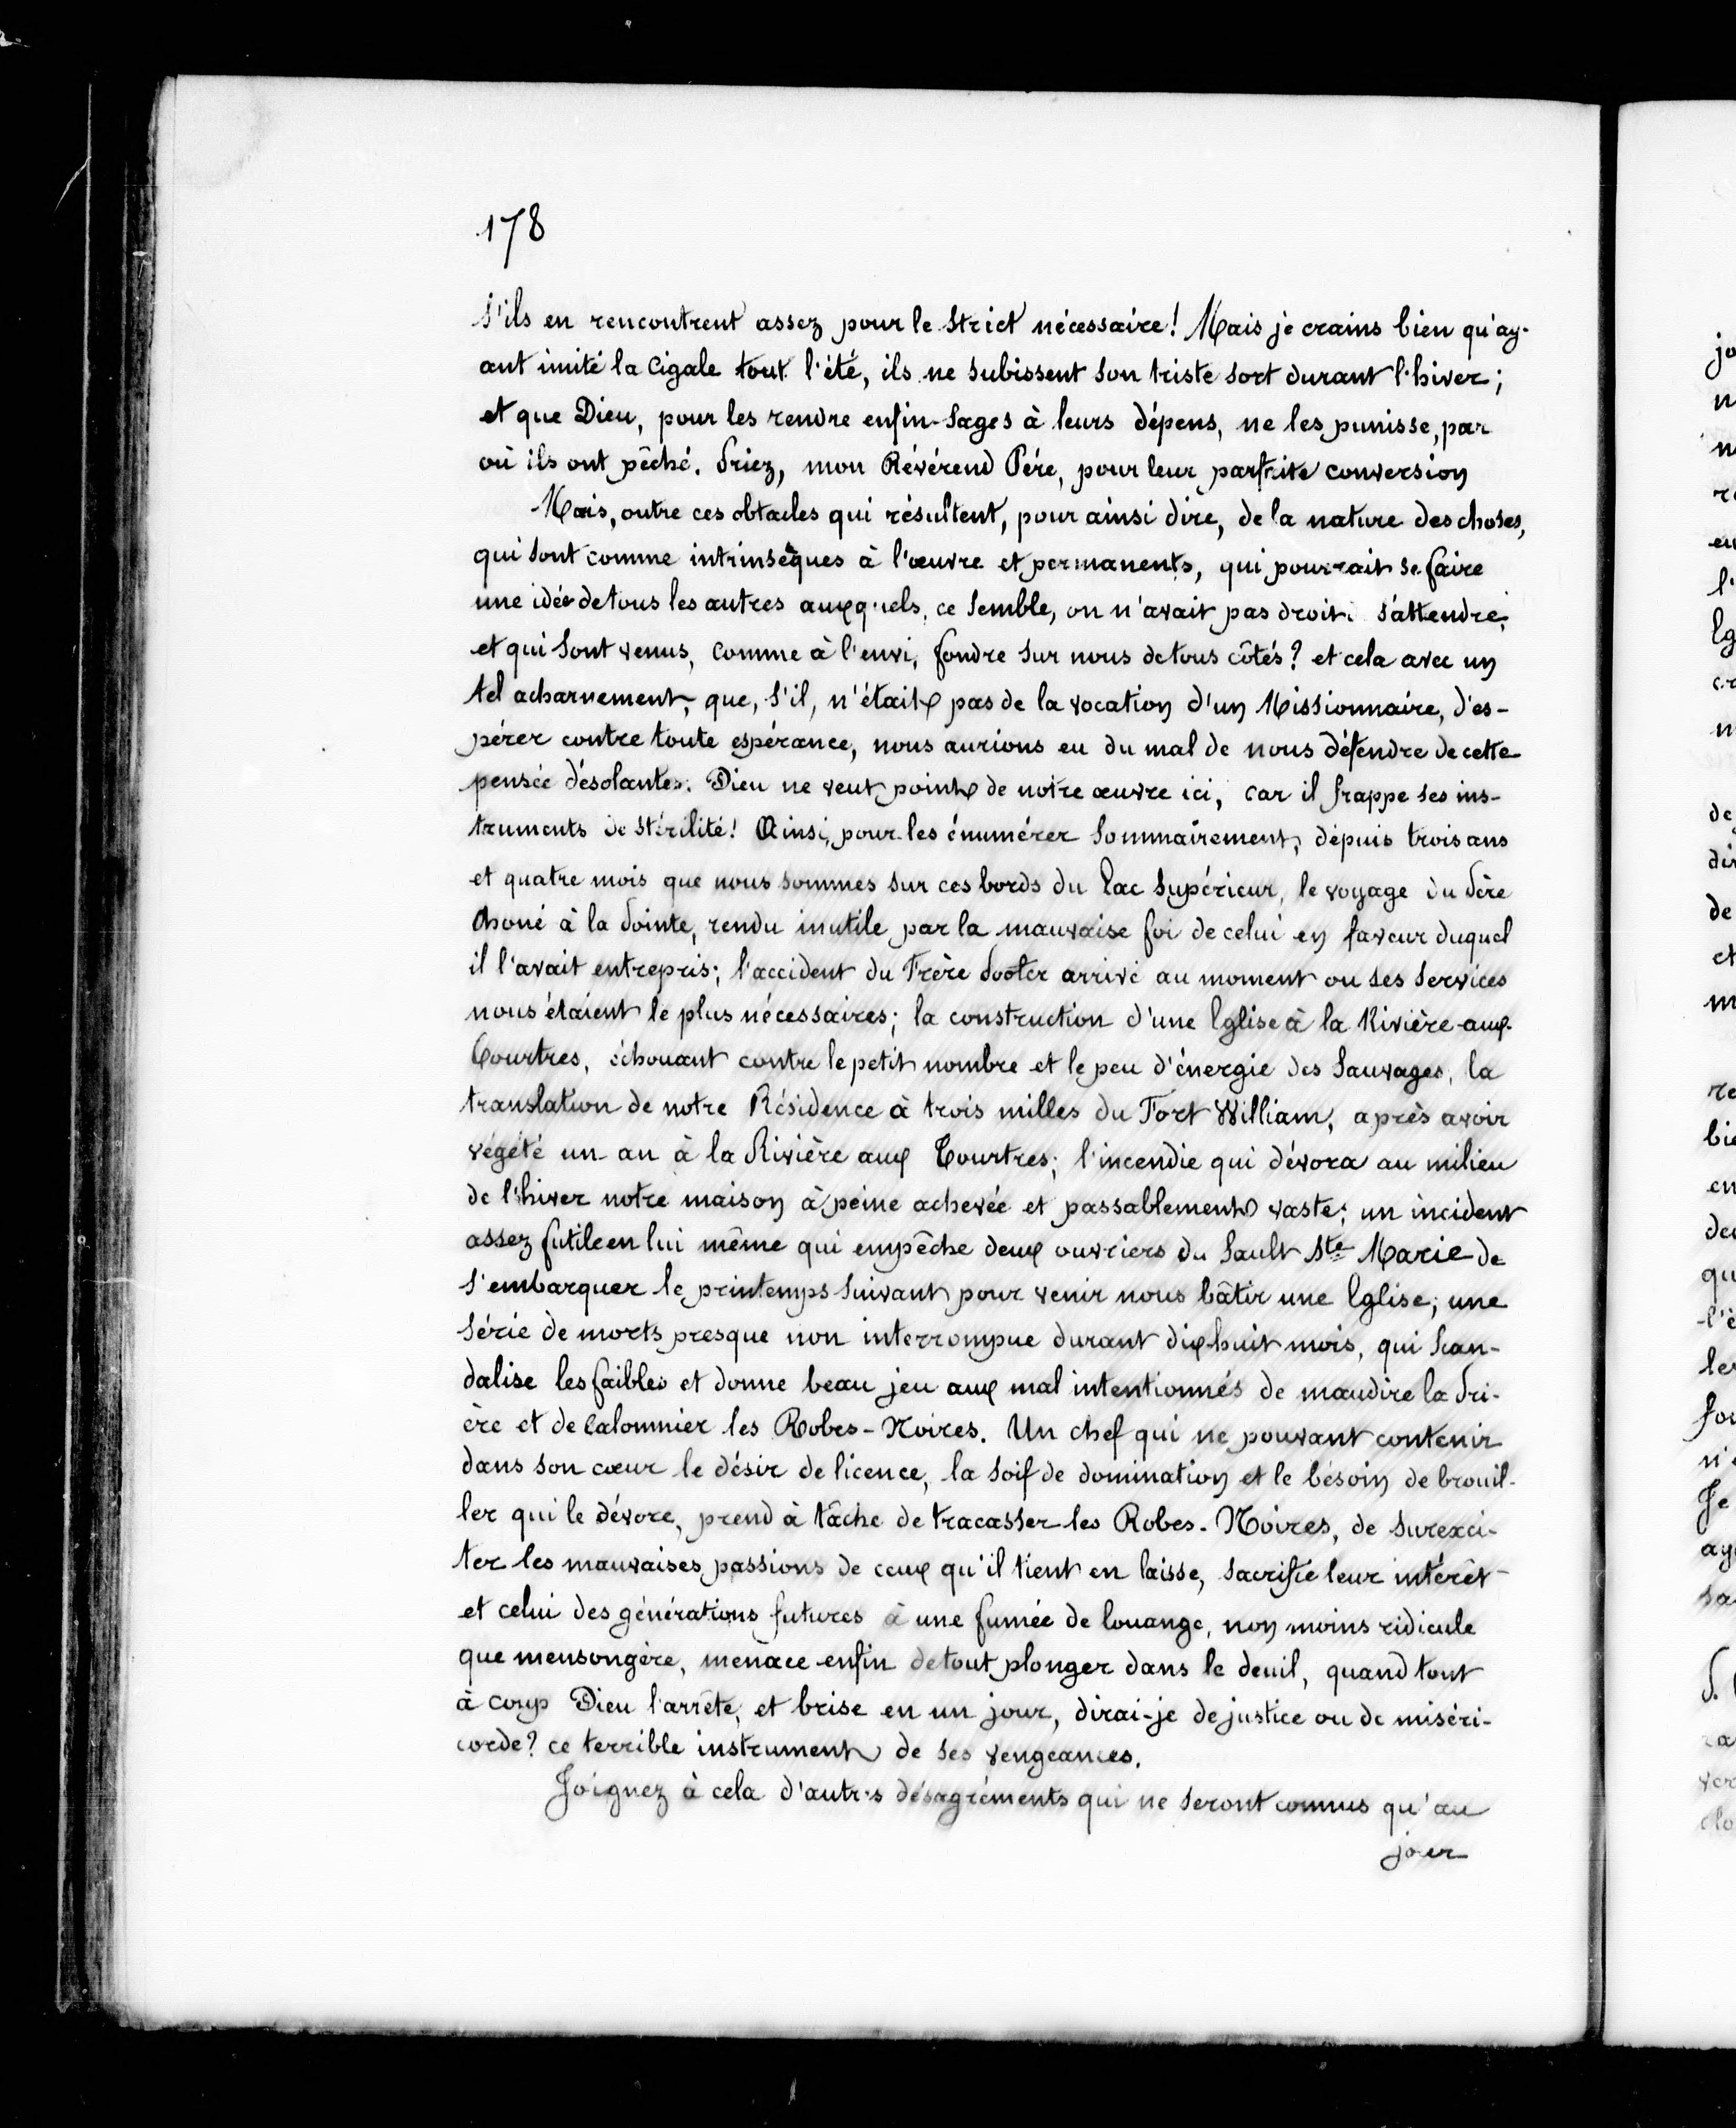 178
s'ils en rencontrent assez pour le strict nécessaire! Mais je crains bien qu'ay-
ant imité la Cigale tout l'été, ils ne subissent son triste sort durant l'hiver;
et que Dieu, pour les rendre enfin sages à leurs dépens, ne les punisse, par
où ils ont pêché. Priez, mon Révérend Pére, pour leur parfaite conversion
Mais, outre ces obtacles qui résultent, pour ainsi dire, de la nature des choses,
qui sont comme intrinsèques à l'œuvre et permanents, qui pourrait se faire
une idée de tous les autres auxquels, ce semble, on n'avait pas droit s'attendre,
et qui sont venus, comme à l'envi, fondre sur nous de tous côtés? et cela avec un
tel acharnement, que, s'il, n'était pas de la vocation d'un Missionnaire, d'es-
pérer contre toute espérance, nous aurions eu du mal de nous défendre de cette
pensée désolante. Dieu ne veut point de notre œuvre ici, car il frappe ses ins-
truments de stérilité! Ainsi, pour les énumérer sommairement, depuis trois ans
et quatre mois que nous sommes sur ces bords du Lac Supérieur, le voyage du Père
Choné à la Pointe, rendu inutile par la mauvaise foi de celui en faveur duquel
il l'avait entrepris; l'accident du Frère arrivé au moment ou ses services
nous étaient le plus nécessaires; la construction d'une Eglise à la Rivière-aux-
Tourtres, échouant contre le petit nombre et le peu d'énergie des Sauvages, la
translation de notre Résidence à trois milles du Fort William, après avoir
végété un an à la Rivière aux Tourtres; l'incendie qui dévora au milieu
de l'hiver notre maison à peine achevée et passablement vaste; un incident
assez futile en lui même qui empêche deux ouvriers du Sault Ste Marie de
s'embarquer le printemps suivant pour venir nous bâtir une Eglise; une
série de morts presque non interrompue durant dix huit mois, qui scan-
dalise les faibles et donne beau jeu aux mal intentionnés de maudire la Pri-
ère et de calomnier les Robes-Noires. Un chef qui ne pouvant contenir
dans son cœur le désir de licence, la soif de domination et le besoin de brouil-
ler qui le dévore, prend à tâche de tracasser les Robes-Noires, de surexci-
ter les mauvaises passions de ceux qu'il tient en laisse, sacrifie leur intérêt
et celui des générations futures à une fumée de louange, non moins ridicule
que mensongère, menace enfin de tout plonger dans le deuil, quand tout
à coup Dieu l'arrête, et brise en un jour, dirai-je de justice ou de miséri-
corde? ce terrible instrument de ses vengeances.
Joignez à cela d'autres désagréments qui ne seront connus qu'au
jour